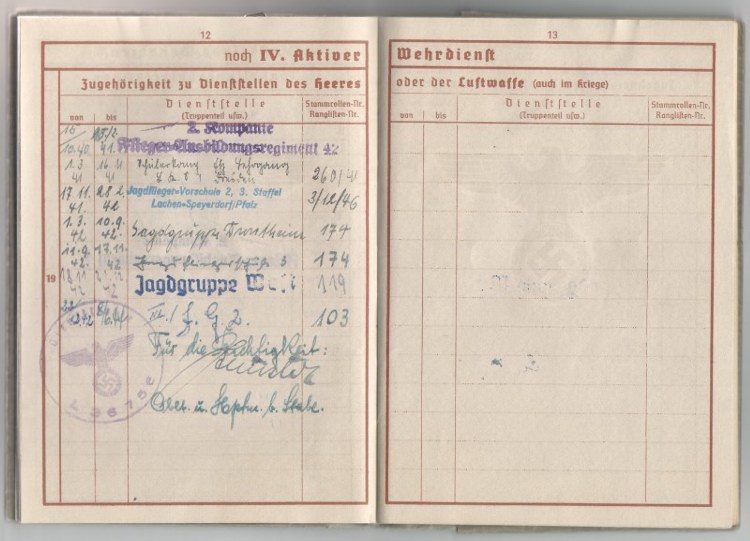 12
noch IV. Aktiver
Zugehörigkeit zu Dienststellen des Heeres
von bis
Dienststelle
(Truppenteil usw.)
Stammrollen-Nr.
Ranglisten-Nr.
16 
10.40. 41.
2. Kompanie
Flieger-Ausbildungsregiment 42
1.3 16.11
41 41
Dresden
260/41
17.11. 28.2.
41. 42
Jagdflieger-Vorschule 2, 3. Staffel
Lachen-Speyerdorf/Pfalz
3/12/46
1.3. 10.9.
42 42.
Jagdgruppe Drontheim
174
11.9. 17.11.
42. 42
3
174
19
42 42
Jagdgruppe West
119
42
III./ J. G. 2.
103
Für die Richtigkeit:
Ober. u. Hptm. b. Stabe.
L 36752
13
Wehrdienst
oder der Luftwaffe (auch im Kriege)
von bis
Dienststelle
(Truppenteil usw.)
Stammrollen-Nr.
Ranglisten-Nr.